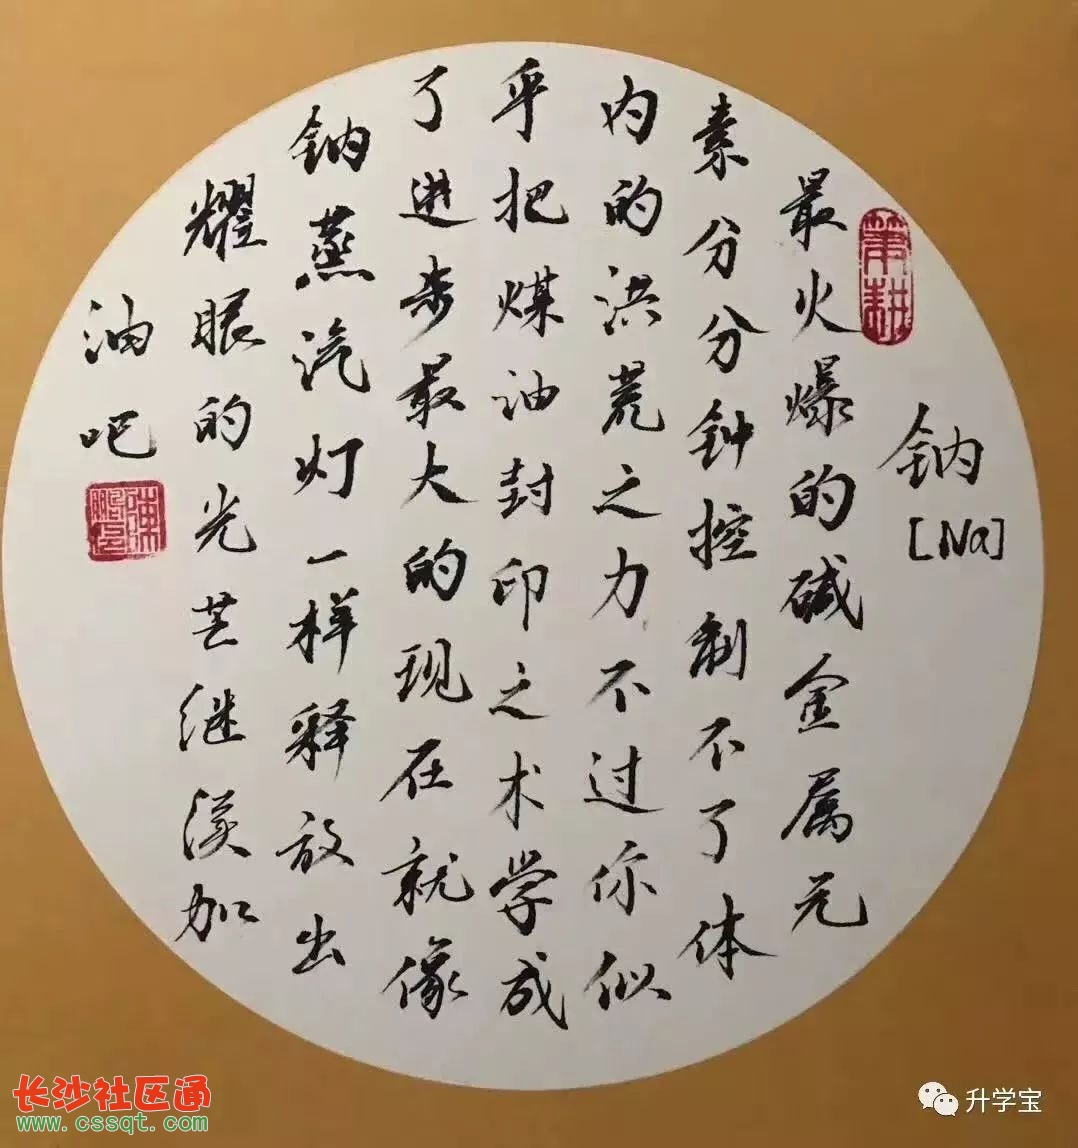 钠
[Na]
筆耕
最火爆的碱金属元
素分分钟控制不了体
内的洪荒之力不过你似
乎把煤油封印之术学成
了进步最大的现在就像
钠蒸汽灯一样释放出
耀眼的光芒继续加
油吧
长沙社区通
www.cssqt.com
升学宝